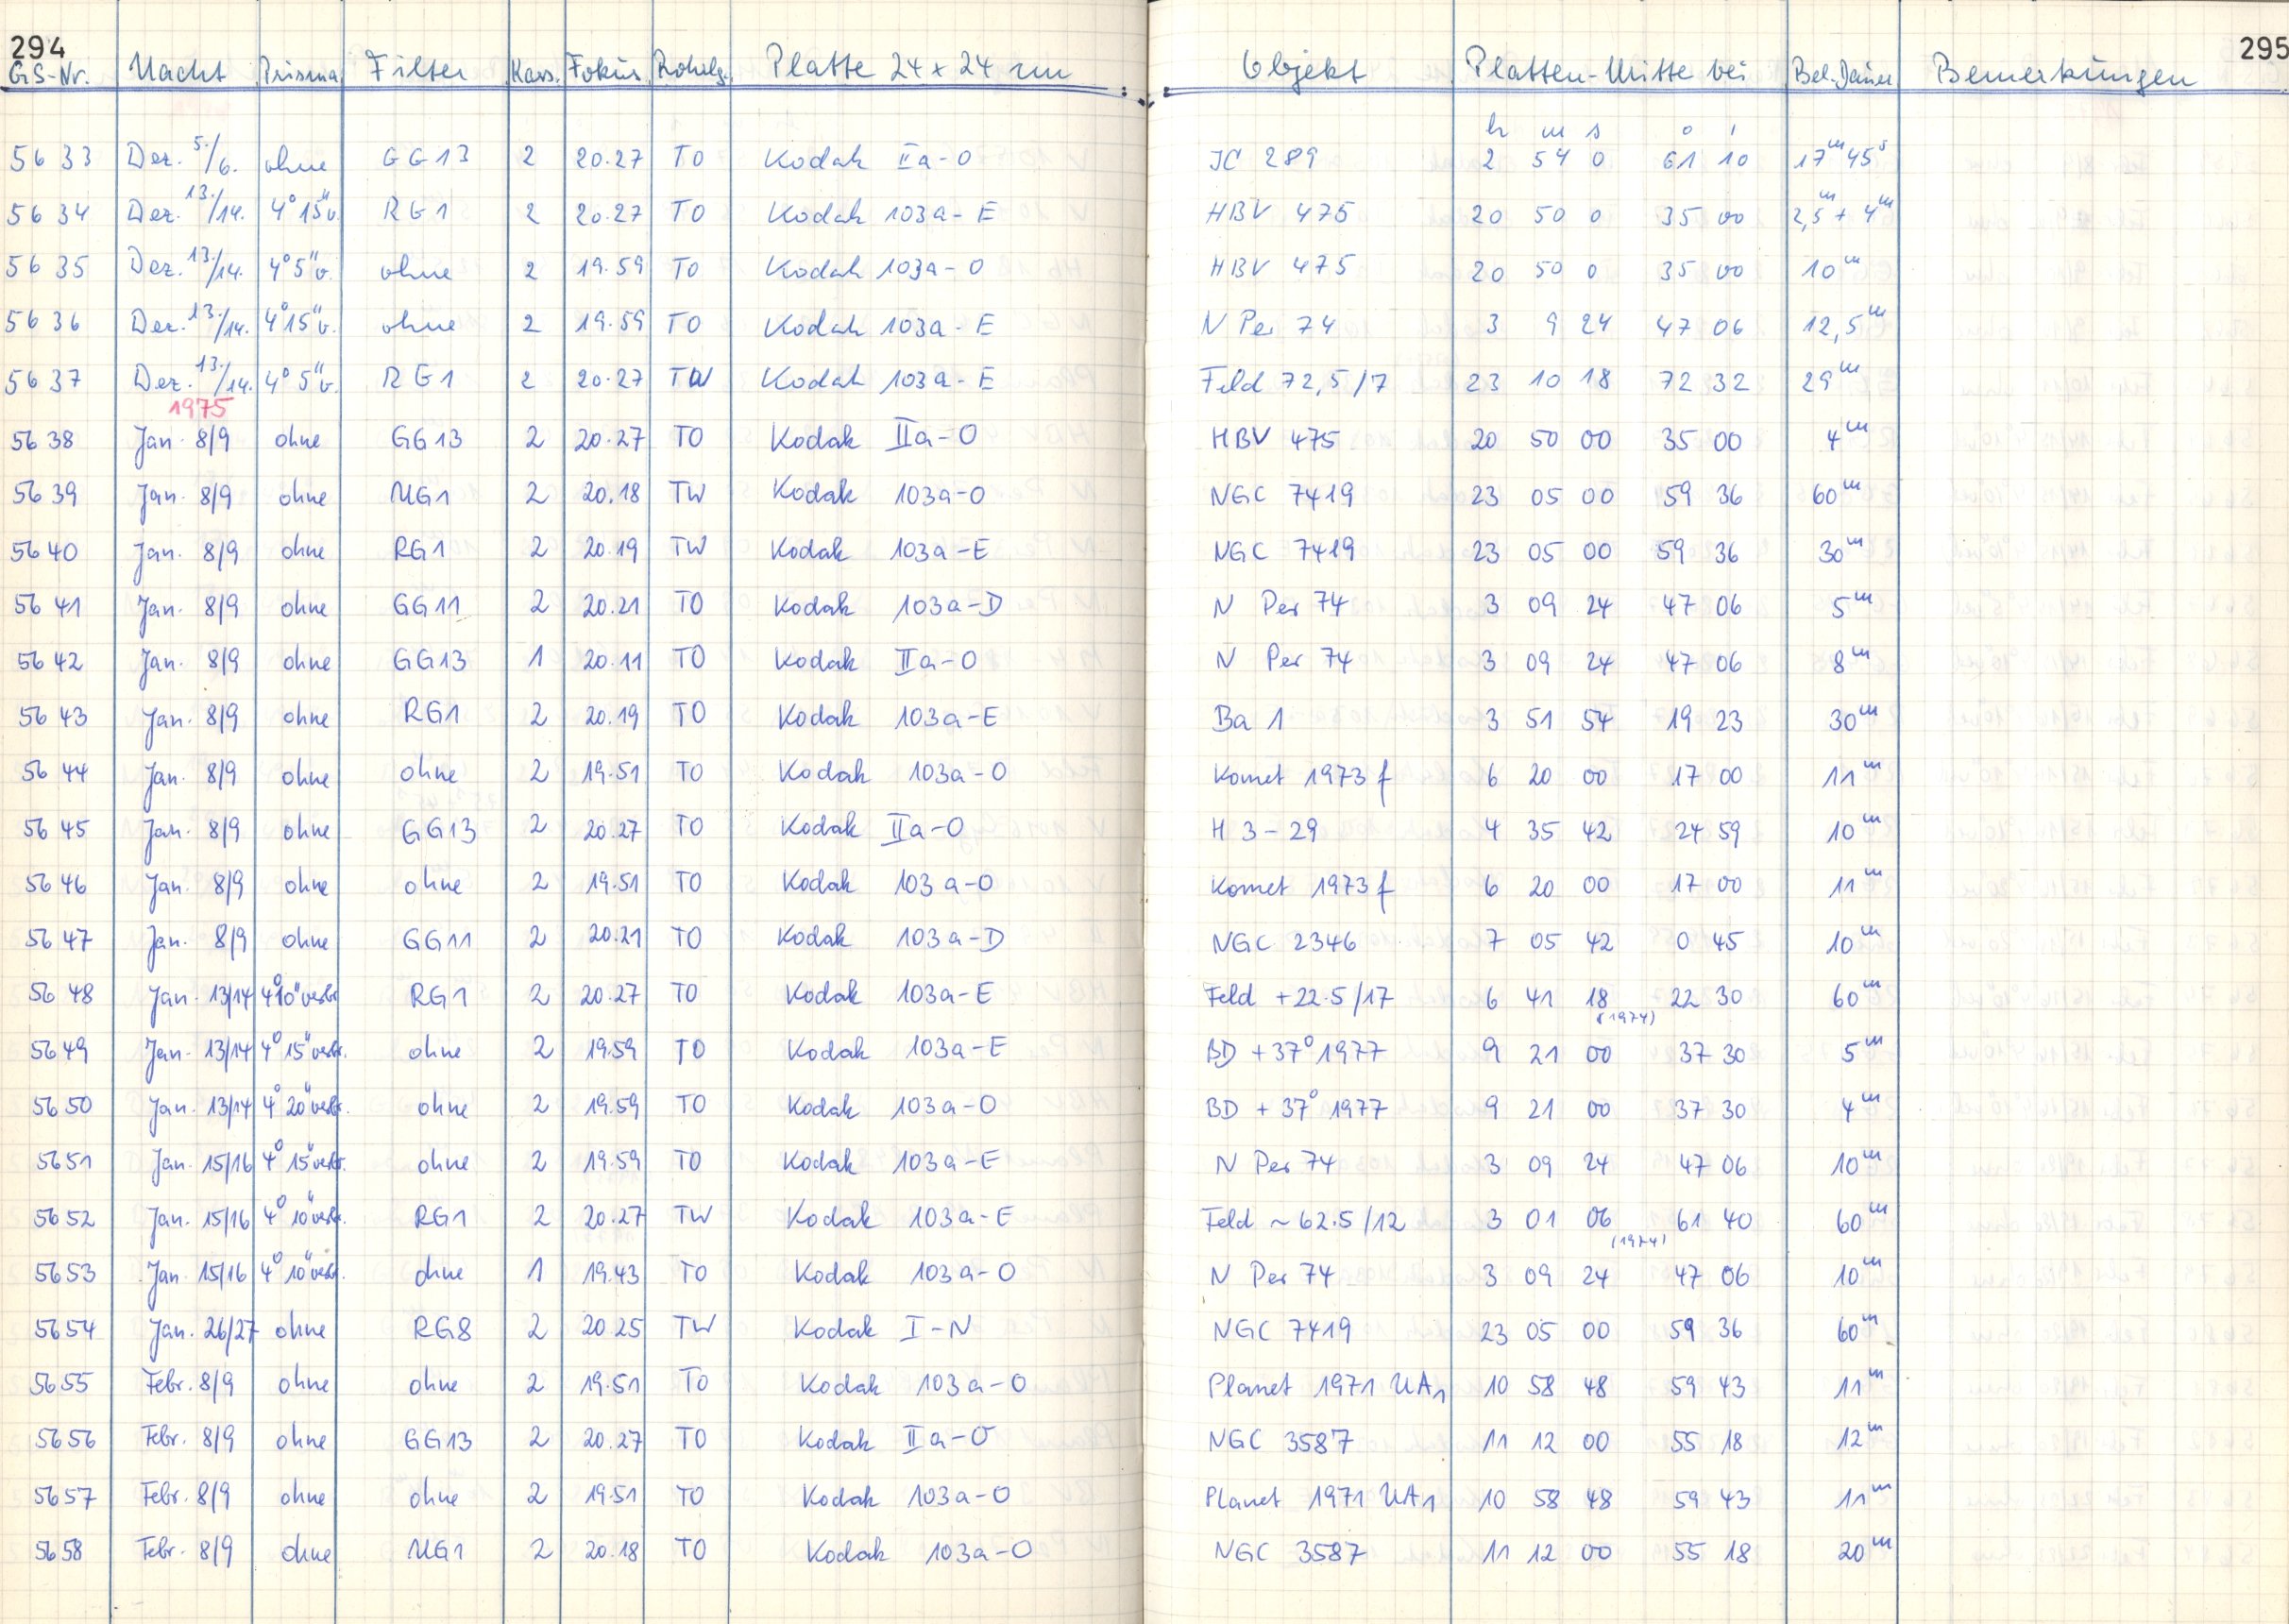 294 295
GS-Nr. Nacht Prisma Filter Kass. Fokus Rohrlg. Platte 24 x 24 cm Objekt Platten-Mitte bei Bel. Dauer Bemerkungen
h m s ° '
5633 Dez. 5./6. ohne GG13 2 20.27 TO Kodak IIa-O JC 289 2 54 0 61 10 17m 45s
5634 Dez. 13./14. 4° 15" v. RG1 2 20.27 TO Kodak 103a-E HBV 475 20 50 0 35 00 2,5m + 4m
5635 Dez. 13./14. 4° 5" v. ohne 2 19.59 TO Kodak 103a-O HBV 475 20 50 0 35 00 10m
5636 Dez. 13./14. 4° 15" v. ohne 2 19.59 TO Kodak 103a-E N Per 74 3 9 24 47 06 12,5m
5637 Dez. 13./14. 4° 5" v. RG1 2 20.27 TW Kodak 103a-E Feld 72,5/7 23 10 18 72 32 29m
1975
5638 Jan. 8/9 ohne GG13 2 20.27 TO Kodak IIa-O HBV 475 20 50 00 35 00 4m
5639 Jan. 8/9 ohne UG1 2 20.18 TW Kodak 103a-O NGC 7419 23 05 00 59 36 60m
5640 Jan. 8/9 ohne RG1 2 20.19 TW Kodak 103a-E NGC 7419 23 05 00 59 36 30m
5641 Jan. 8/9 ohne GG11 2 20.21 TO Kodak 103a-D N Per 74 3 09 24 47 06 5m
5642 Jan. 8/9 ohne GG13 1 20.11 TO Kodak IIa-O N Per 74 3 09 24 47 06 8m
5643 Jan. 8/9 ohne RG1 2 20.19 TO Kodak 103a-E Ba 1 3 51 54 19 23 30m
5644 Jan. 8/9 ohne ohne 2 19.51 TO Kodak 103a-O Komet 1973 f 6 20 00 17 00 11m
5645 Jan. 8/9 ohne GG13 2 20.27 TO Kodak IIa-O H 3-29 4 35 42 24 59 10m
5646 Jan. 8/9 ohne ohne 2 19.51 TO Kodak 103a-O Komet 1973 f 6 20 00 17 00 11m
5647 Jan. 8/9 ohne GG11 2 20.21 TO Kodak 103a-D NGC 2346 7 05 42 0 45 10m
5648 Jan. 13/14 4° 10" verbr. RG1 2 20.27 TO Kodak 103a-E Feld +22.5/17 6 41 18 22 30 60m
(1974)
5649 Jan. 13/14 4° 15" verbr. ohne 2 19.59 TO Kodak 103a-E BD +37° 1977 9 21 00 37 30 5m
5650 Jan. 13/14 4° 20" verbr. ohne 2 19.59 TO Kodak 103a-O BD +37° 1977 9 21 00 37 30 4m
5651 Jan. 15/16 4° 15" verbr. ohne 2 19.59 TO Kodak 103a-E N Per 74 3 09 24 47 06 10m
5652 Jan. 15/16 4° 10" verbr. RG1 2 20.27 TW Kodak 103a-E Feld ~62.5/12 3 01 06 61 40 60m
(1974)
5653 Jan. 15/16 4° 10" verbr. ohne 1 19.43 TO Kodak 103a-O N Per 74 3 09 24 47 06 10m
5654 Jan. 26/27 ohne RG8 2 20.25 TW Kodak I-N NGC 7419 23 05 00 59 36 60m
5655 Febr. 8/9 ohne ohne 2 19.51 TO Kodak 103a-O Planet 1971 UA1 10 58 48 59 43 11m
5656 Febr. 8/9 ohne GG13 2 20.27 TO Kodak IIa-O NGC 3587 11 12 00 55 18 12m
5657 Febr. 8/9 ohne ohne 2 19.51 TO Kodak 103a-O Planet 1971 UA1 10 58 48 59 43 11m
5658 Febr. 8/9 ohne UG1 2 20.18 TO Kodak 103a-O NGC 3587 11 12 00 55 18 20m